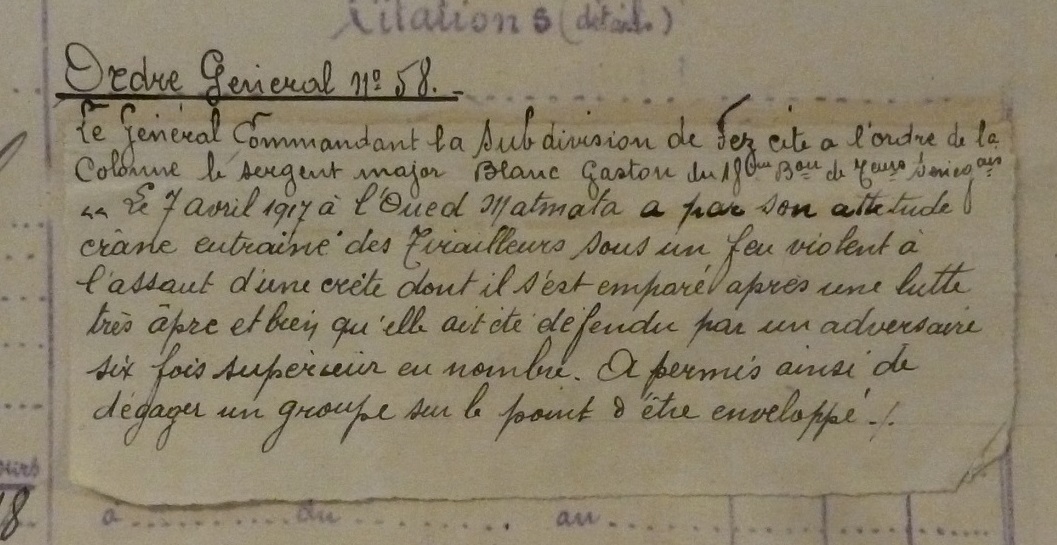 Citations (détails)
Ordre Général nº 58.
Le Général Commandant la Subdivision de Fez cite a l'ordre de la
Colonne le sergent major Blanc Gaston du 18eme Bon de Teurs Sénégais
"" Le 7 avril 1917 à l'Oued Matmata a par son attitude
crâne entrainé des Tirailleurs sous un feu violent à
l'assaut d'une crête dont il s'est emparé après une lutte
très âpre et bien qu'elle ait été défendu par un adversaire
six fois supérieur en nombre. A permis ainsi de
dégager un groupe sur le point d'être enveloppé ./.
8
a ........ du ........ au ........